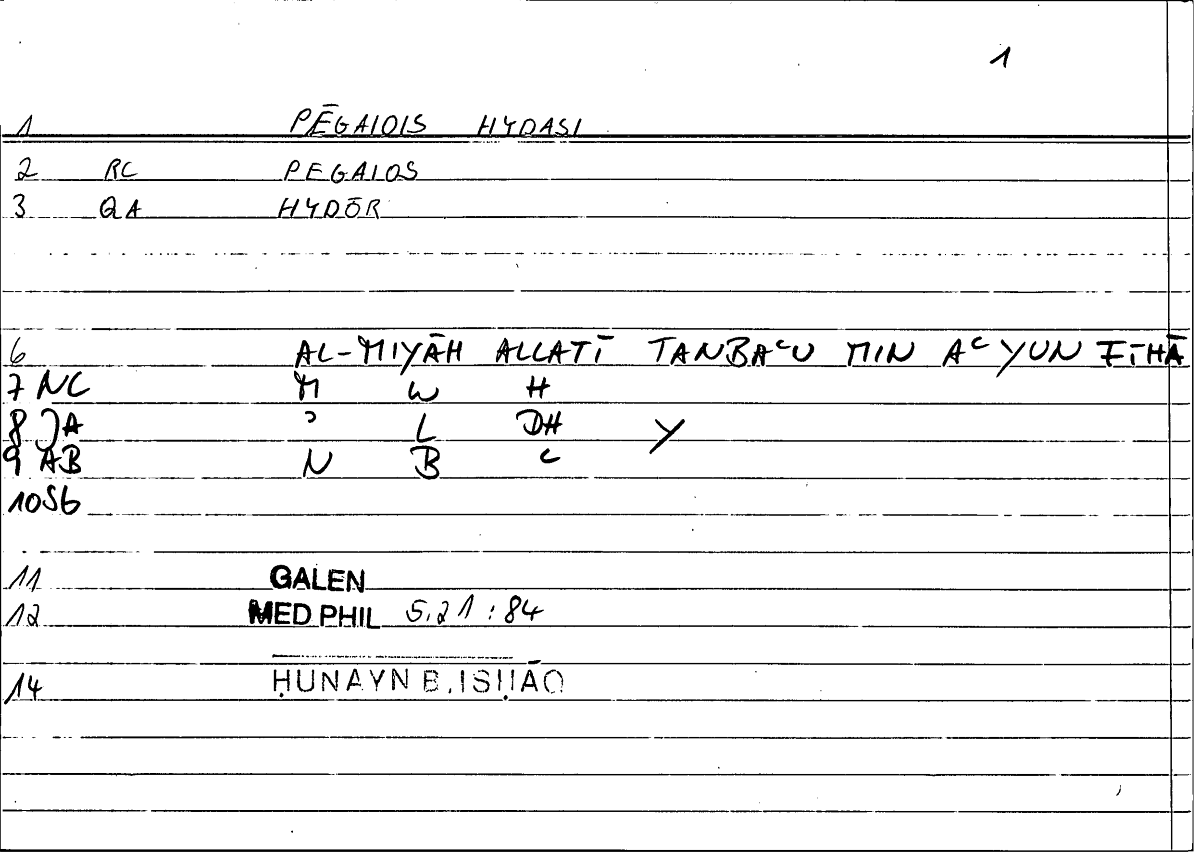 1
1 PĒGAIOIS HYDASI
2 RC PEGAIOS
3 QA HYDŌR
6 AL-MIYĀH ALLATĪ TANBAʿU MIN AʿYUN FĪHĀ
7 NC M W H
8 JA ʾ L DH Y
9 AB N B ʿ
10 SB
11 GALEN
12 MED PHIL 5.21 : 84
14 ḤUNAYN B. ISḤĀQ